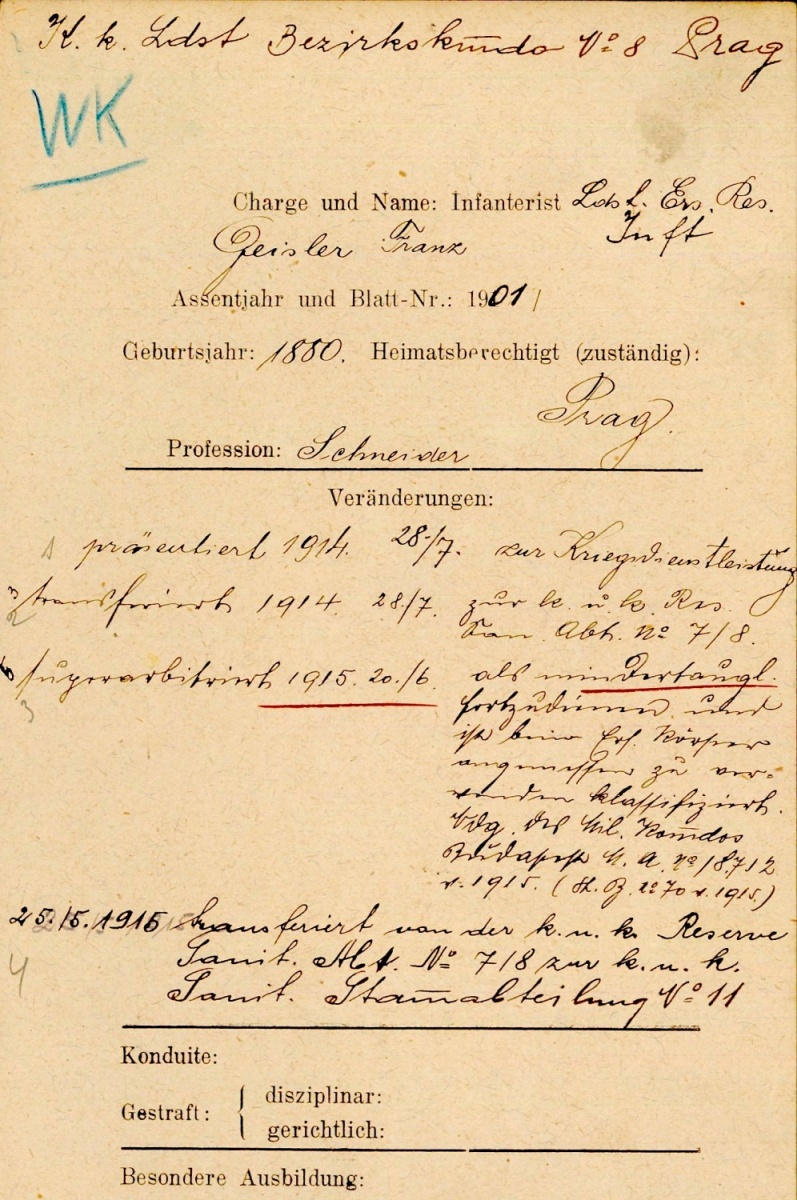 K. k. Ldst Bezirkskm̅do Nº 8 Prag
WK
Charge und Name: Infanterist Ldst. Ers. Res.
Geisler Franz Inft
Assentjahr und Blatt-Nr.: 1901/
Geburtsjahr: 1880. Heimatsberechtigt (zuständig):
Prag.
Profession: Schneider
Veränderungen:
1 präsentiert 1914. 28./7. zur Kriegsdienstleistung
3 2 transferiert 1914. 28./7. zur k. u. k. Res.
San. Abt. Nº 7/8.
3 superarbitriert 1915. 20./6. als mindertaugl.
fortzudienen und
ist beim Ers. Körper
angemessen zu ver-
wenden klassifiziert.
Vdg. des Mil. Kom̅dos
Budapest M. A. Nº 18.712
v. 1915. (St. B. Nº 70 v. 1915.)
25./5. 1915 transferiert von der k. u. k. Reserve
4 Sanit. Abt. Nº 7/8 zur k. u. k.
Sanit. Stam̅abteilung Nº 11
Konduite:
Gestraft: { disziplinar:
gerichtlich:
Besondere Ausbildung: